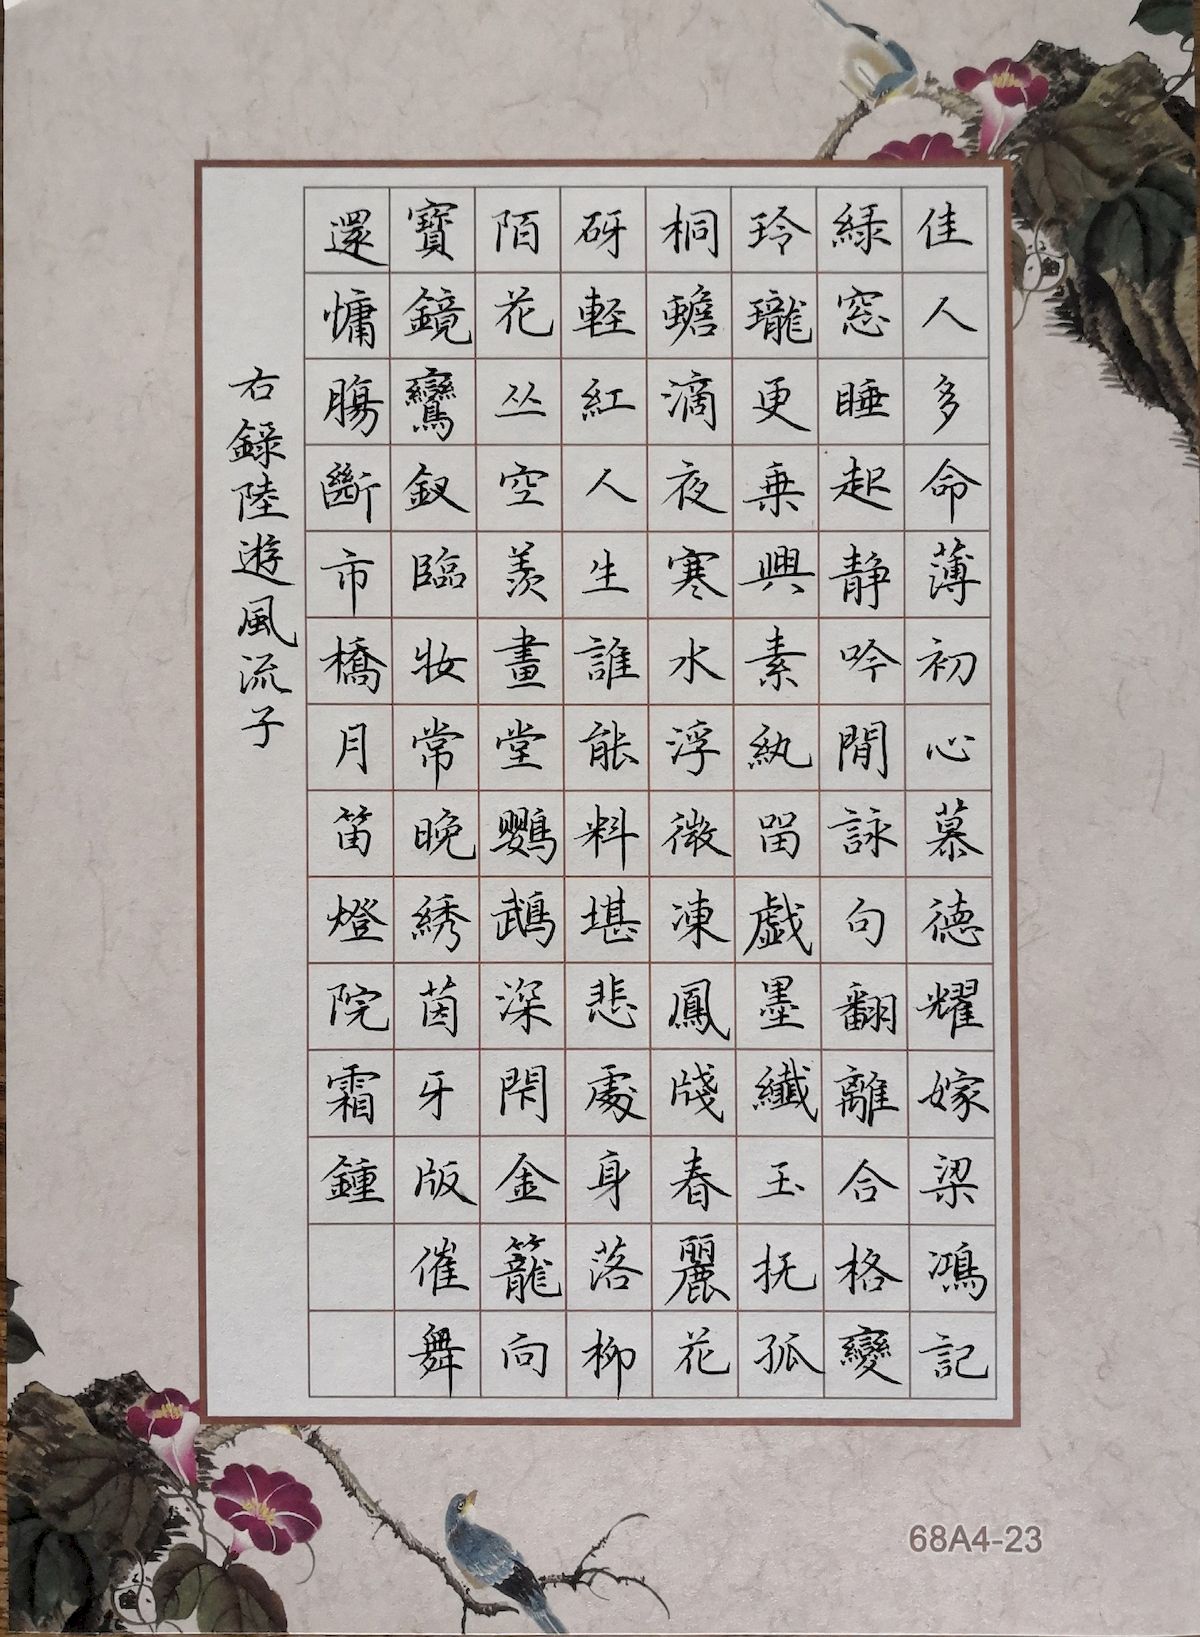 佳人多命薄初心慕德耀嫁梁鴻記
綠窓睡起静吟閒詠句翻離合格變
玲瓏更乗興素紈留戯墨纖玉抚孤
桐蟾滴夜寒水浮微凍鳳牋春麗花
砑軽紅人生誰能料堪悲處身落柳
陌花丛空羨畫堂鸚鵡深閇金籠向
寶鏡鸞釵臨妝常晩綉茵牙版催舞
還慵腸斷市橋月笛燈院霜鍾
右錄陸遊風流子
68A4-23